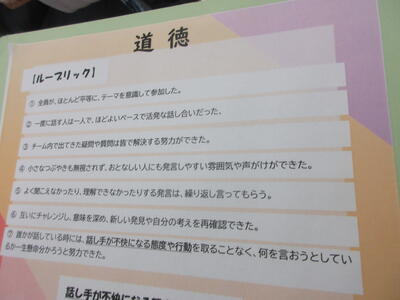 道徳
【ルーブリック】
① 全員が、ほとんど平等に、テーマを意識して参加した。
② 一度に話す人は一人で、ほどよいペースで活発な話し合いだった。
③ チーム内で出てきた疑問や質問は皆で解決する努力ができた。
④ 小さなつぶやきも無視されず、おとなしい人にも発言しやすい雰囲気や声がけができた。
⑤ よく聞こえなかったり、理解できなかったりする発言は、繰り返し言ってもらう。
⑥ 互いにチャレンジし、意味を深め、新しい発見や自分の考えを再確認できた。
⑦ 誰かが話している時には、話し手が不快になる態度や行動を取ることなく、何を言おうとしてい
るか一生懸命分かろうと努力できた。
話し手が不快になる